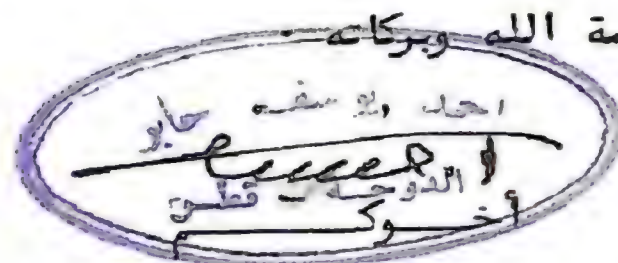 مة الله وبركاته .
احمد يوسف جابر
الدوحة - قطر
أخوكم